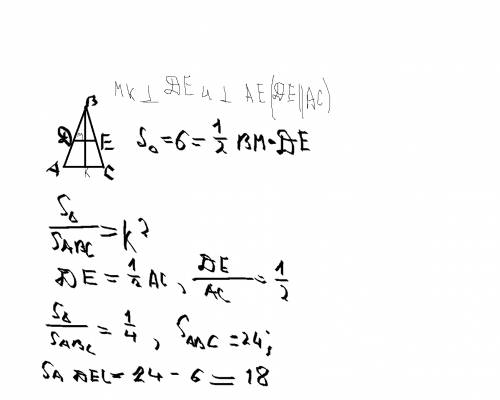 MK ⊥ DE и ⊥ AE (DE || AC)
B
D M E
A K C
S₀ = 6 = 1/2 BM · DE
S△/SABC = k²
DE = 1/2 AC, DE/AC = 1/2
S△/SABC = 1/4, SABC = 24;
SADEC = 24 - 6 = 18